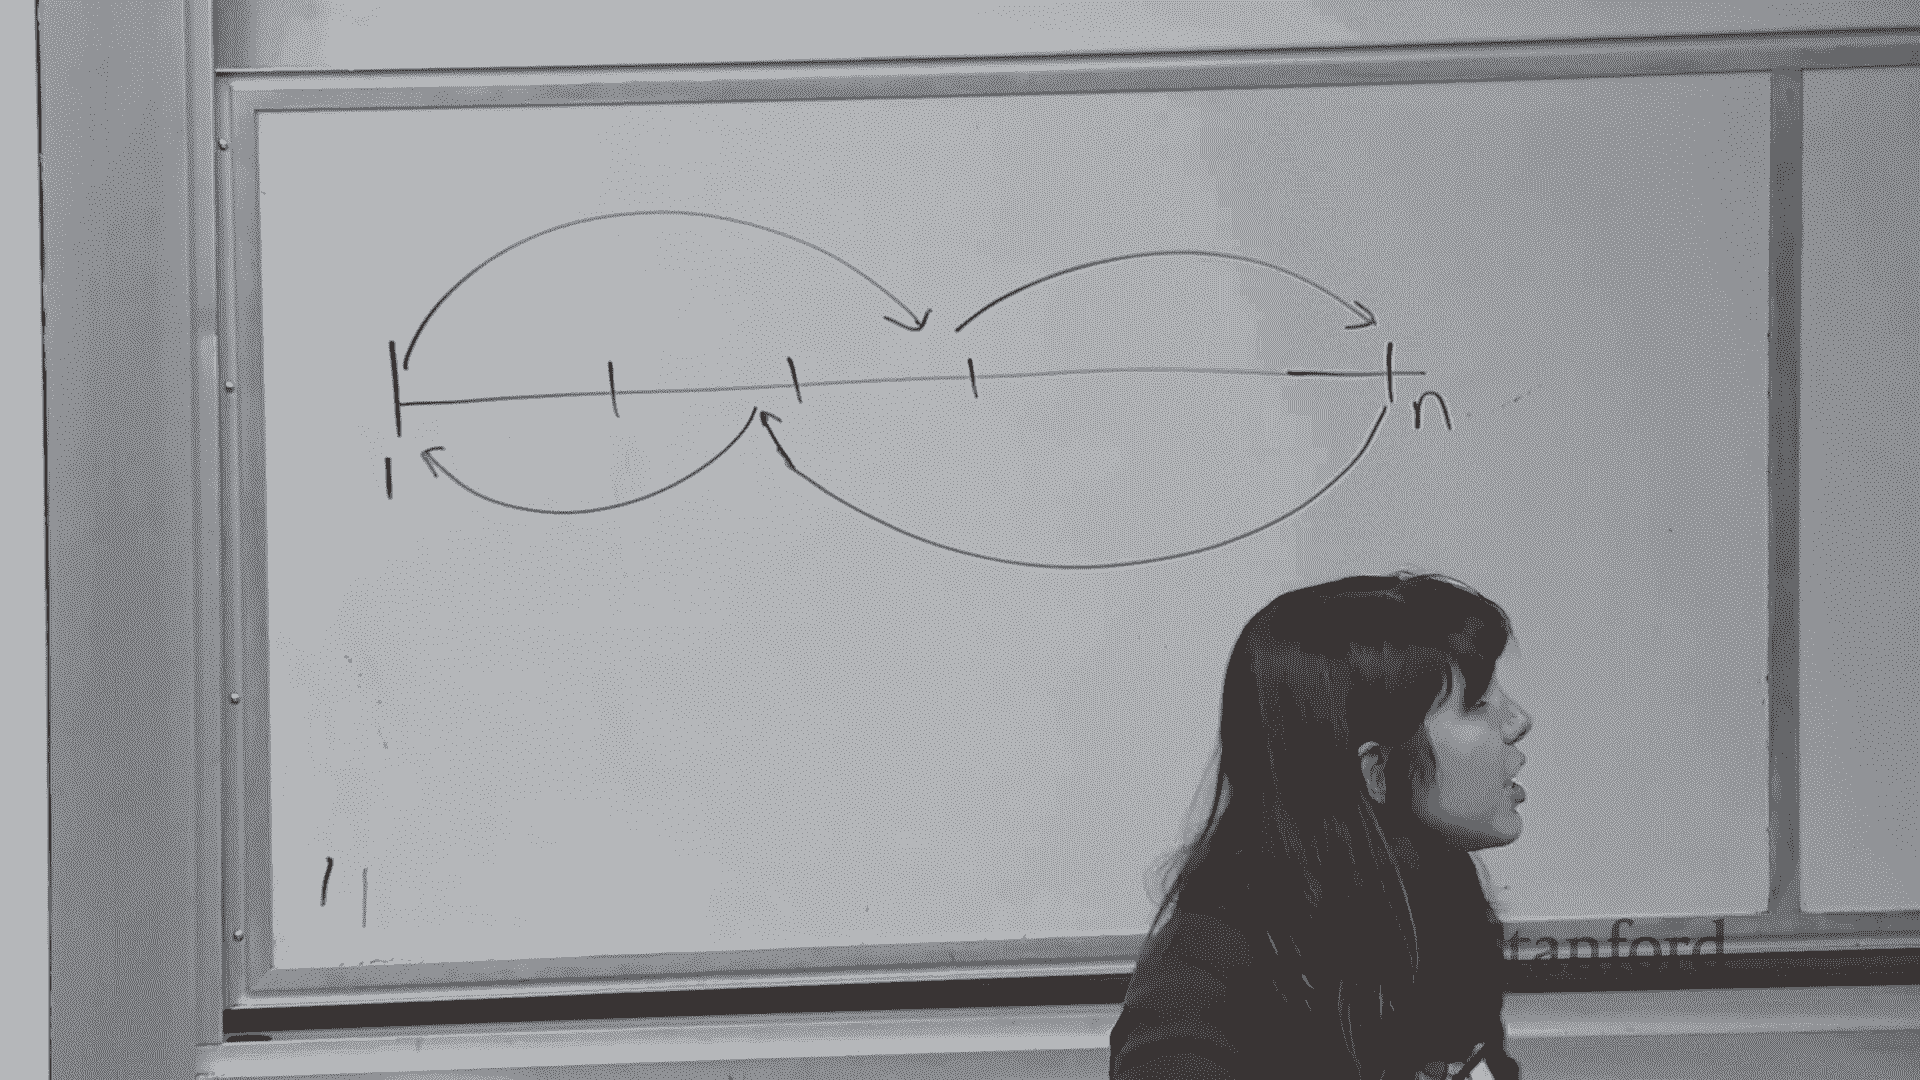 n
1
tanford